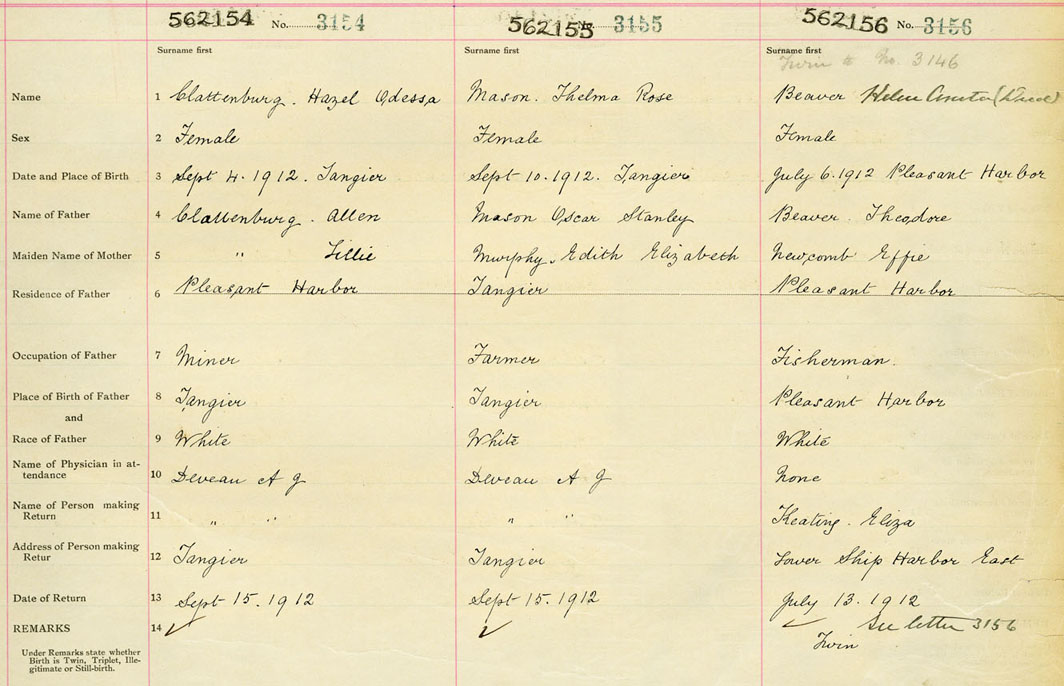 562154 No. 3154 562155 No. 3155 562156 No. 3156
Surname first Surname first Surname first
Twin to No. 3146
Name 1 Clattenburg. Hazel Odessa Mason. Thelma Rose Beaver Helen
Sex 2 Female Female Female
Date and Place of Birth 3 Sept 4. 1912. Tangier Sept 10. 1912. Tangier July 6. 1912 Pleasant Harbor
Name of Father 4 Clattenburg. Allen Mason Oscar Stanley Beaver. Theodore
Maiden Name of Mother 5 " Lillie Murphy. Edith Elizabeth Newcomb Effie
Residence of Father 6 Pleasant Harbor Tangier Pleasant Harbor
Occupation of Father 7 Miner Farmer Fisherman.
Place of Birth of Father 8 Tangier Tangier Pleasant Harbor
and
Race of Father 9 White White White
Name of Physician in at-
tendance 10 Deveau A J Deveau A J None
Name of Person making
Return 11 " " " " Keating. Eliza
Address of Person making
Retur 12 Tangier Tangier Lower Ship Harbor East
Date of Return 13 Sept 15. 1912 Sept 15. 1912 July 13. 1912
REMARKS 14 ✓ ✓ ✓ See letter 3156
Twin
Under Remarks state whether
Birth is Twin, Triplet, Ille-
gitimate or Still-birth.